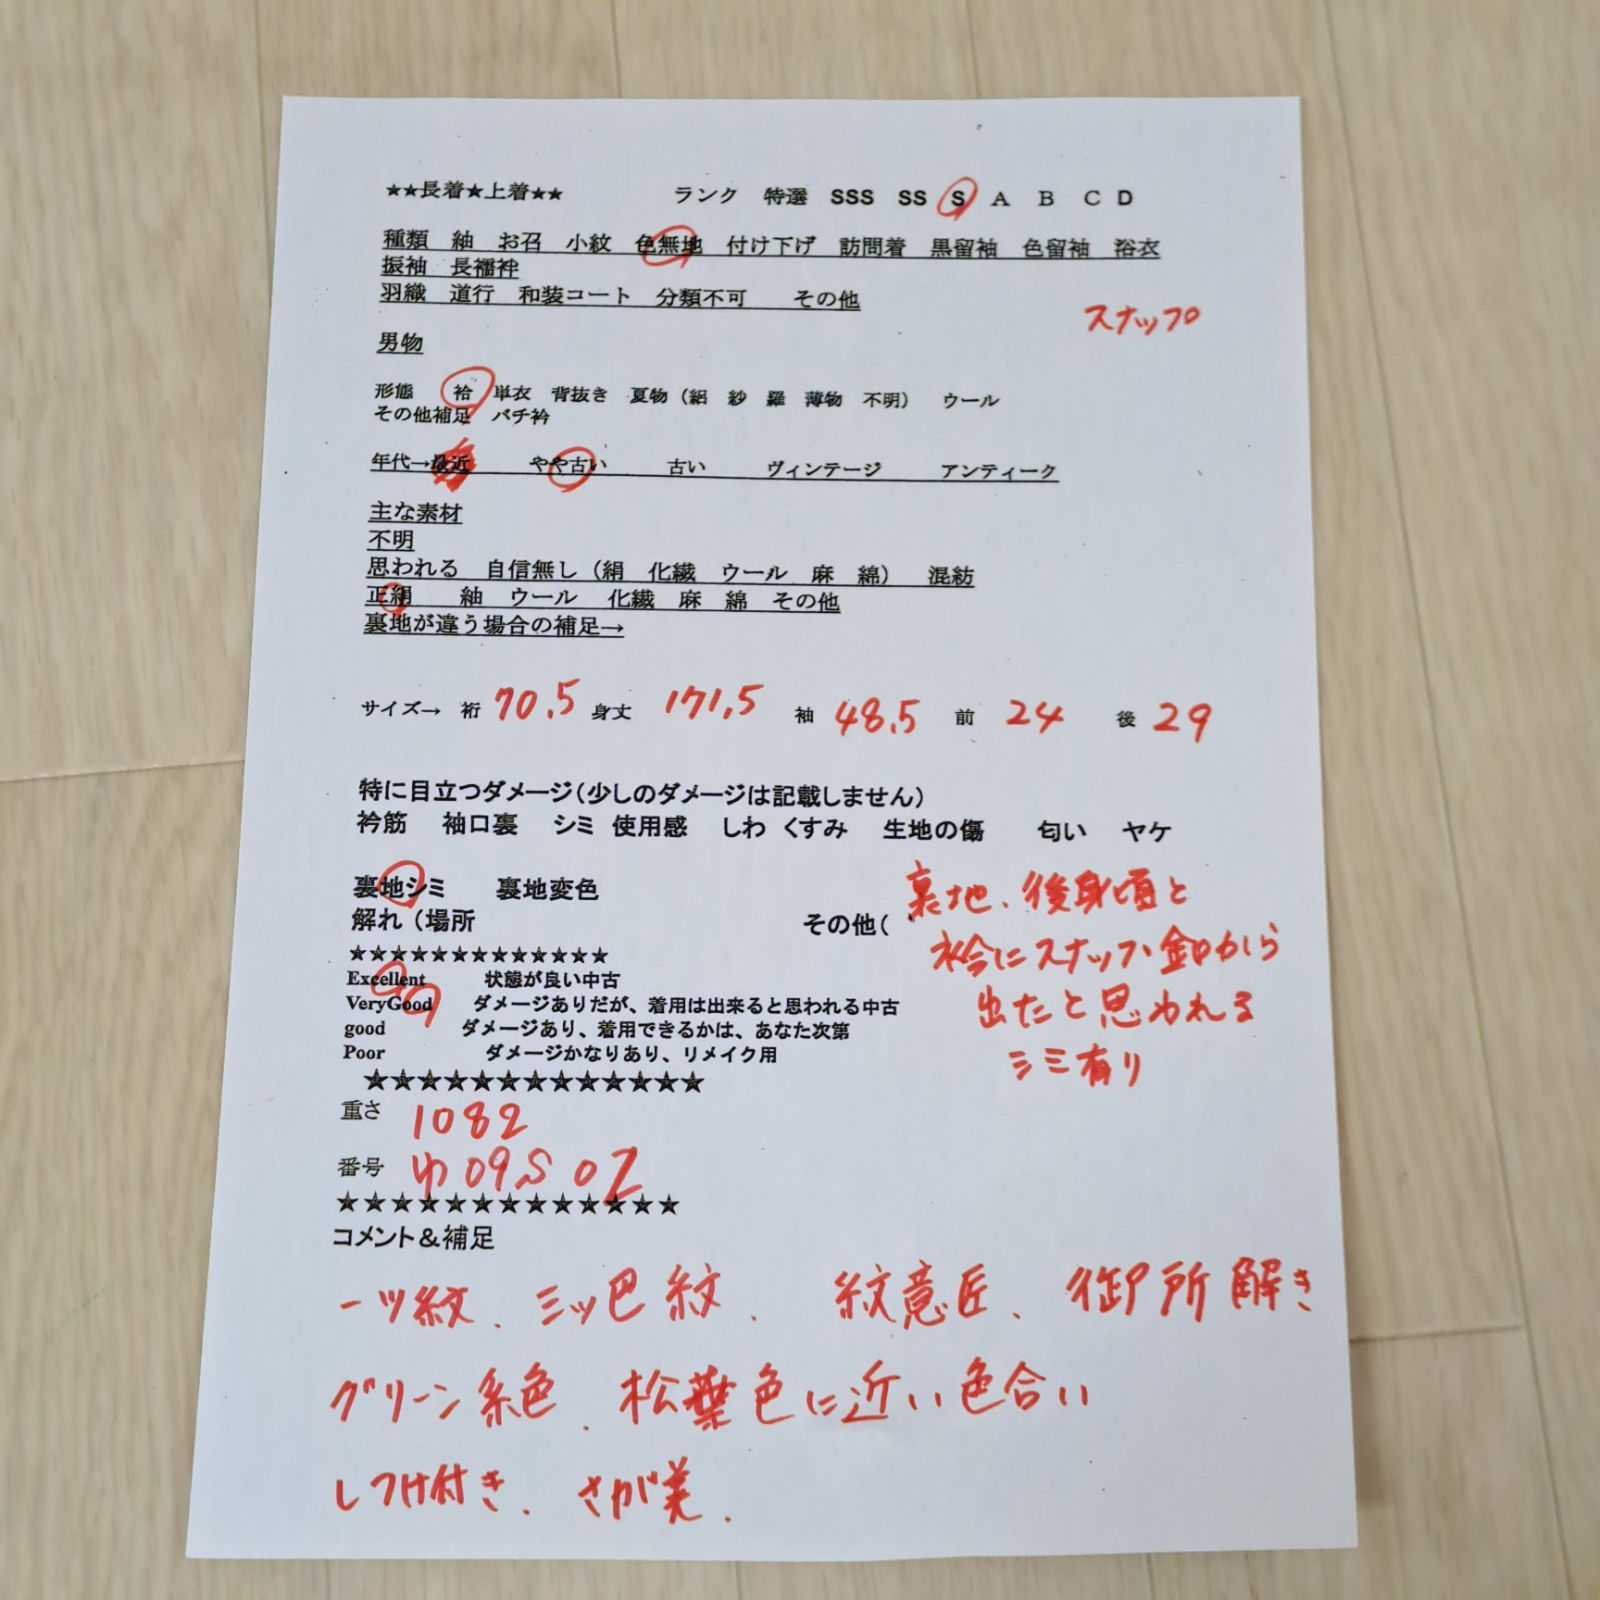 ★★長着★上着★★ ランク 特選 SSS SS S A B C D
種類 紬 お召 小紋 色無地 付け下げ 訪問着 黒留袖 色留袖 浴衣
振袖 長襦袢
羽織 道行 和装コート 分類不可 その他
スナップ
男物
形態 袷 単衣 背抜き 夏物（絽 紗 羅 薄物 不明） ウール
その他補足 バチ衿
年代→最近 やや古い 古い ヴィンテージ アンティーク
主な素材
不明
思われる 自信無し（絹 化繊 ウール 麻 綿） 混紡
正絹 紬 ウール 化繊 麻 綿 その他
裏地が違う場合の補足→
サイズ→ 裄 70.5 身丈 171.5 袖 48.5 前 24 後 29
特に目立つダメージ（少しのダメージは記載しません）
衿筋 袖口裏 シミ 使用感 しわ くすみ 生地の傷 匂い ヤケ
裏地シミ 裏地変色
解れ（場所 その他（
裏地、後身頃と
衿にスナップ釦から
出たと思われる
シミ有り
★★★★★★★★★★★★★
Excellent 状態が良い中古
VeryGood ダメージありだが、着用は出来ると思われる中古
good ダメージあり、着用できるかは、あなた次第
Poor ダメージかなりあり、リメイク用
★★★★★★★★★★★★★
重さ 1082
番号 ゆ09S07
★★★★★★★★★★★★★
コメント＆補足
一ツ紋、三ッ巴紋、紋意匠、御所解き
グリーン系色、松葉色に近い色合い
しつけ付き、さが美、